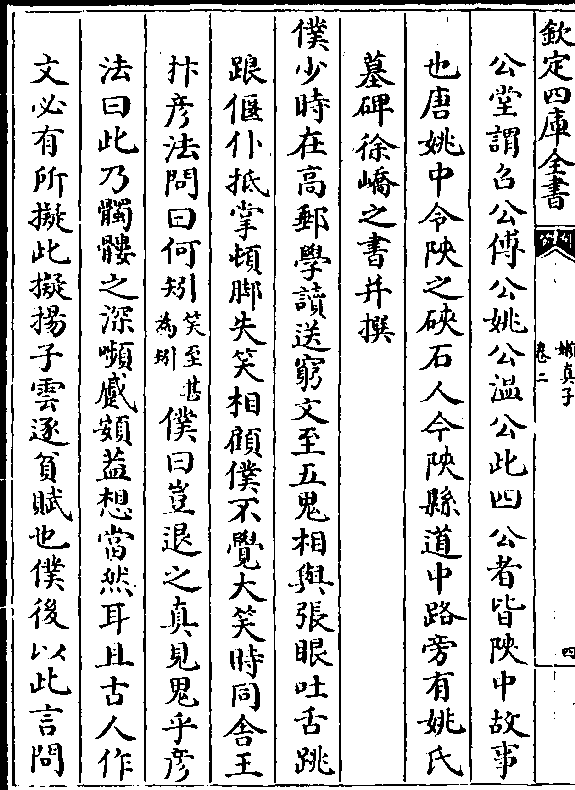 欽定四庫全書
嬾真子
卷二
四
公堂謂召公傅公姚公温公此四公者皆陜中故事
也唐姚中令陜之硤石人今陜縣道中路旁有姚氏
墓碑徐嶠之書并撰
僕少時在高郵學讀送窮文至五鬼相與張眼吐舌跳
踉偃仆抵掌頓脚失笑相顧僕不覺大笑時同舎王
抃彥法問曰何矧笑至甚為矧僕曰豈退之真見鬼乎彥
法曰此乃髑髏之深嚬蹙頞葢想當然耳且古人作
文必有所擬此擬揚子雲逐貧賦也僕後以此言問